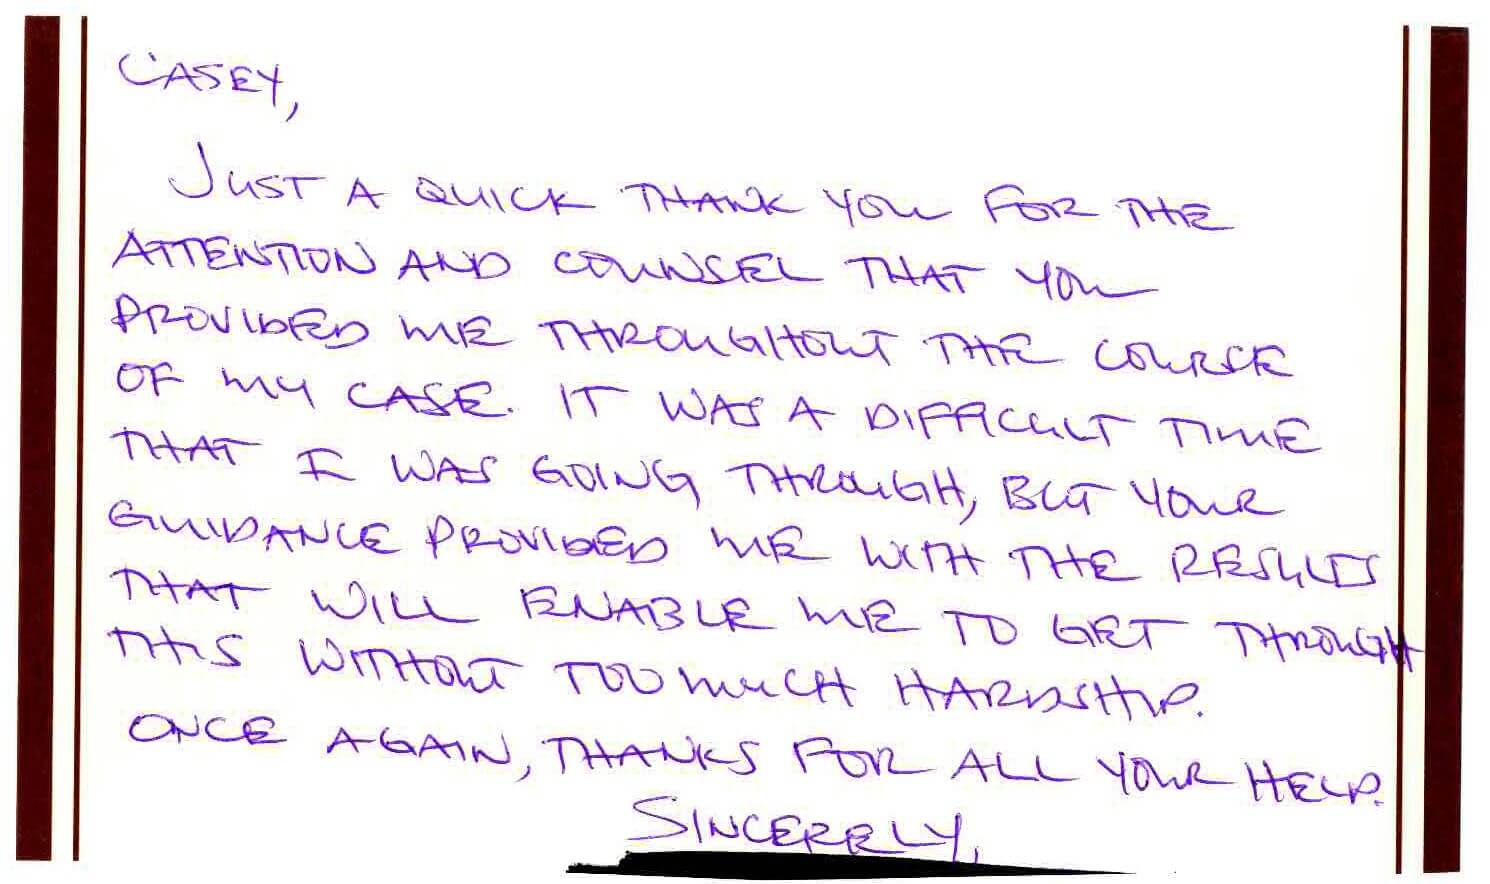 CASEY,
JUST A QUICK THANK YOU FOR THE
ATTENTION AND COUNSEL THAT YOU
PROVIDED ME THROUGHOUT THE COURSE
OF MY CASE. IT WAS A DIFFICULT TIME
THAT I WAS GOING THROUGH, BUT YOUR
GUIDANCE PROVIDED ME WITH THE RESULTS
THAT WILL ENABLE ME TO GET THROUGH
THIS WITHOUT TOO MUCH HARDSHIP.
ONCE AGAIN, THANKS FOR ALL YOUR HELP.
SINCERELY,